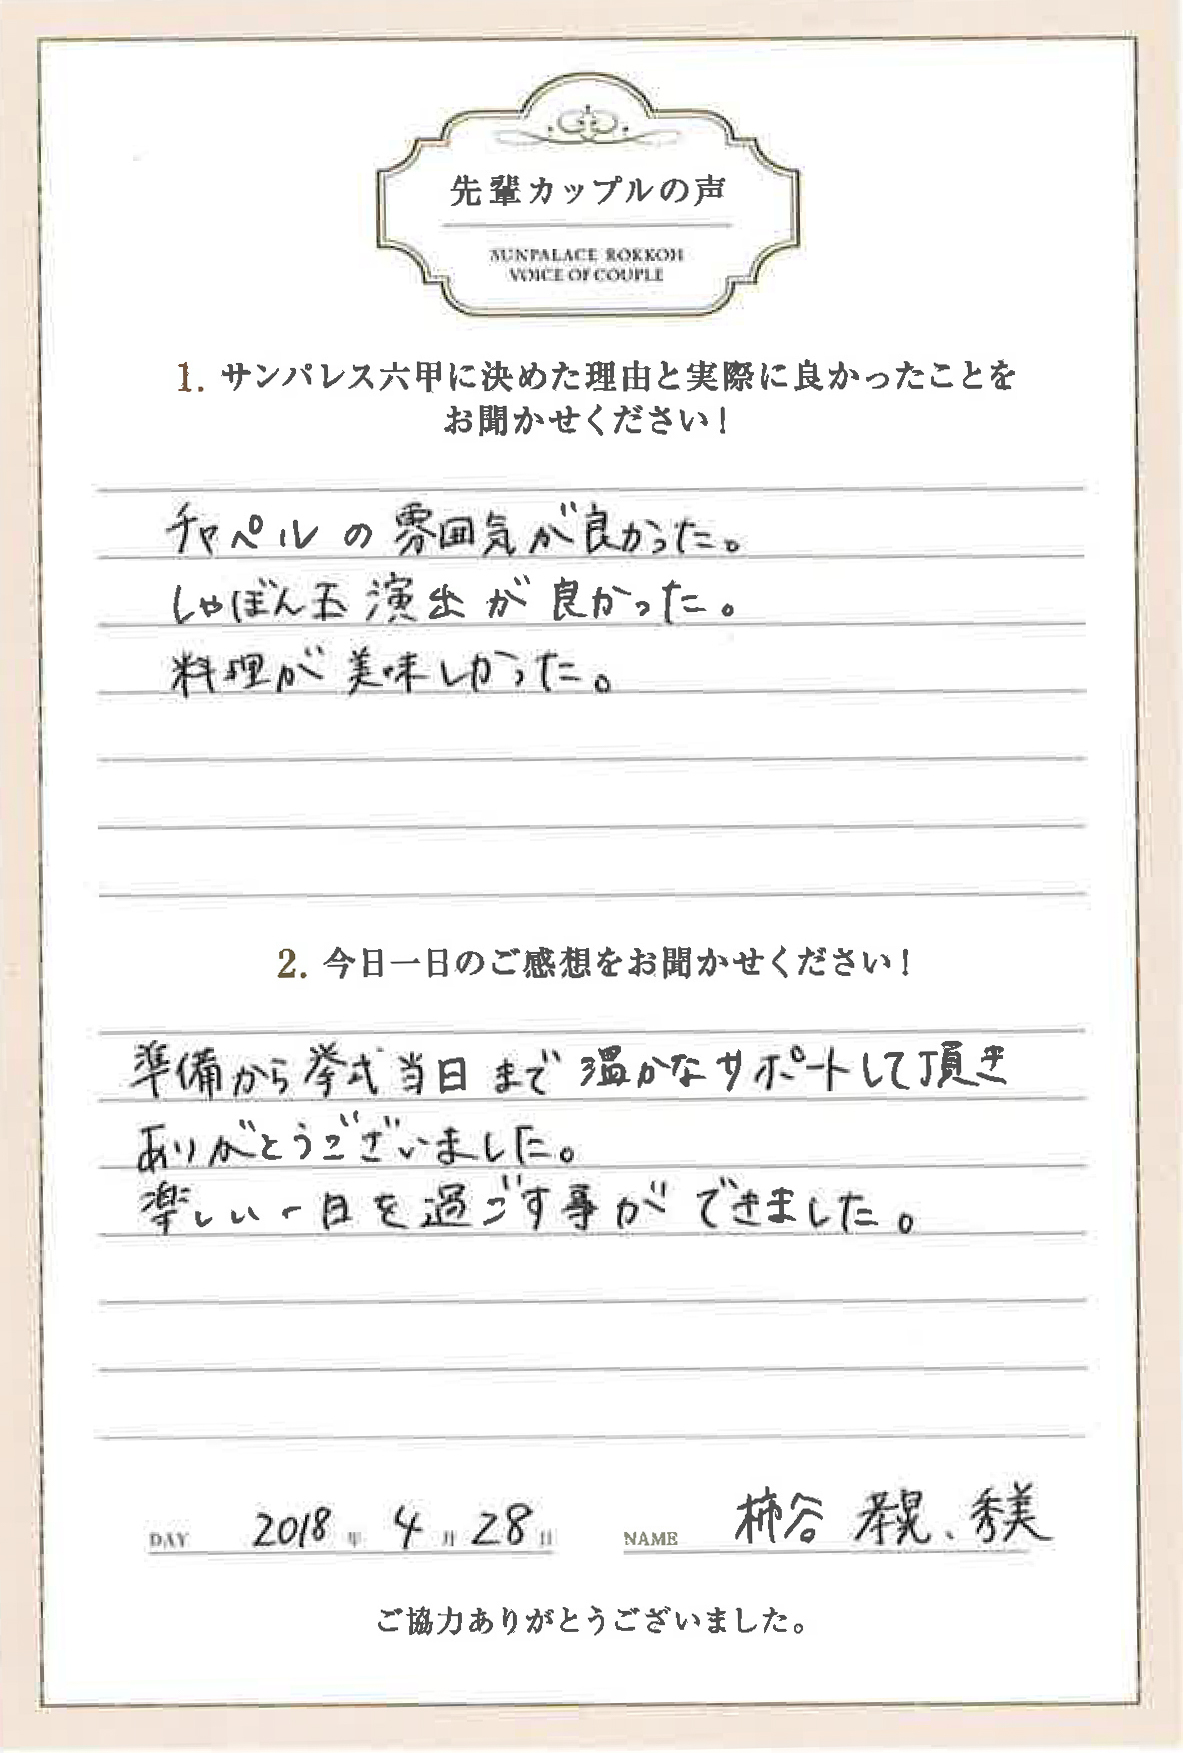 先輩カップルの声
SUNPALACE ROKKOH
VOICE OF COUPLE
1. サンパレス六甲に決めた理由と実際に良かったことを
お聞かせください!
チャペルの雰囲気が良かった。
しゃぼん玉演出が良かった。
料理が美味しかった。
2. 今日一日のご感想をお聞かせください!
準備から挙式当日まで温かなサポートして頂き
ありがとうございました。
楽しい一日を過ごす事ができました。
DAY 2018年 4月 28日 NAME 柿谷 孝晃、秀美
ご協力ありがとうございました。